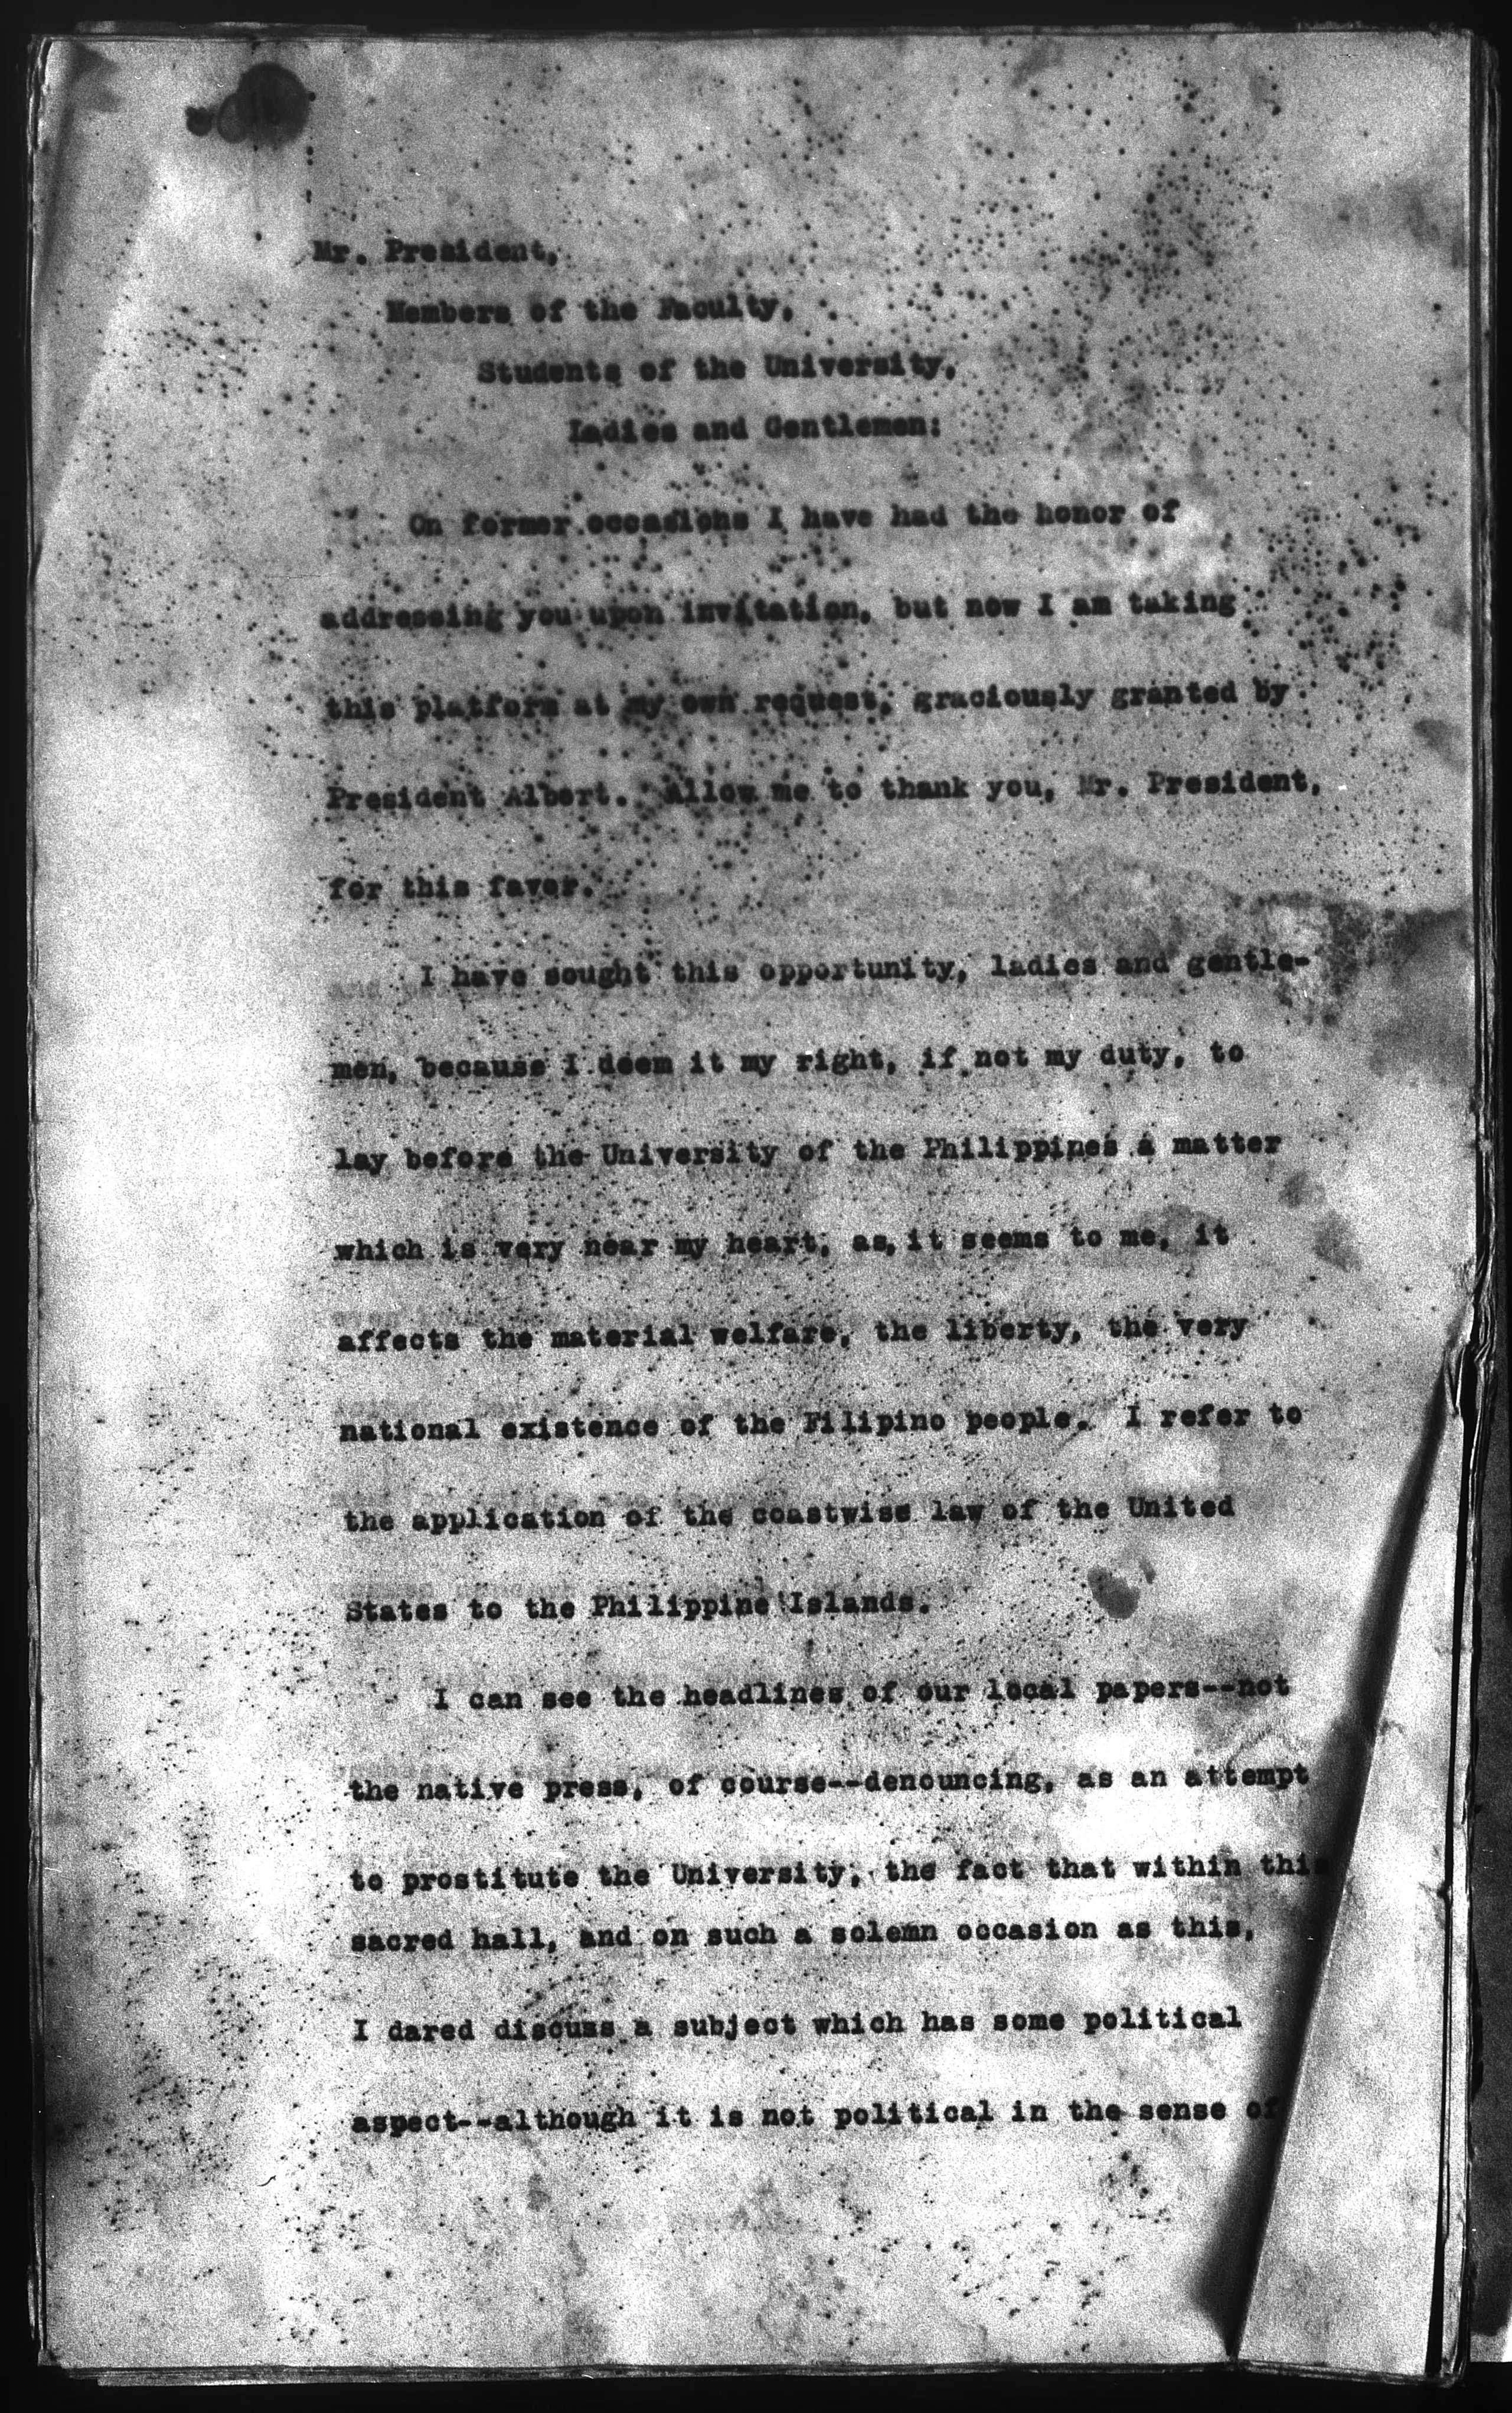 Mr. President,
Members of the Faculty,
Students of the University,
Ladies and Gentlemen:
On former occasions I have had the honor of
addressing you upon invitation, but now I am taking
this platform at my own request, graciously granted by
President Albert. Allow me to thank you, Mr. President,
for this favor.
I have sought this opportunity, ladies and gentle-
men, because I deem it my right, if not my duty, to
lay before the University of the Philippines a matter
which is very near my heart, as, it seems to me, it
affects the material welfare, the liberty, the very
national existence of the Filipino people. I refer to
the application of the coastwise law of the United
States to the Philippine Islands.
I can see the headlines of our local papers--not
the native press, of course--denouncing, as an attempt
to prostitute the University, the fact that within this
sacred hall, and on such a solemn occasion as this,
I dared discuss a subject which has some political
aspect--although it is not political in the sense of